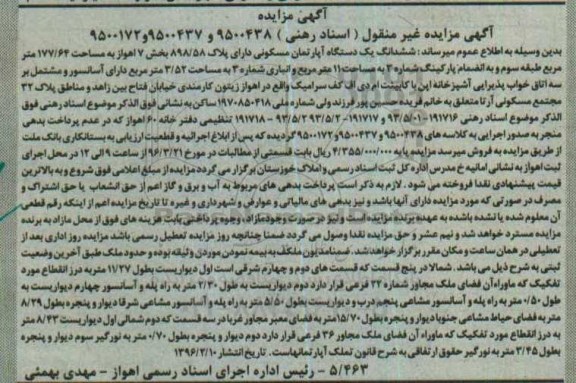 آگهی مزایده
آگهی مزایده غیر منقول ( اسناد رهنی ) ۹۵۰۰۴۳۸ و ۹۵۰۰۴۳۷و۹۵۰۰۱۷۲
بدین وسیله به اطلاع عموم میرساند : ششدانگ یک دستگاه آپارتمان مسکونی دارای پلاک ۸۹۸/۵۸ بخش ۷ اهواز به مساحت ۱۷۷/۶۴ متر
مربع طبقه سوم و به انضمام پارکینگ شماره ۳ به مساحت ۱۱ متر مربع و انباری شماره ۳ به مساحت ۳/۵۲ متر مربع دارای آسانسور و مشتمل بر
سه اتاق خواب پذیرایی آشپزخانه اپن با کابینت ام دی اف کف سرامیک واقع در اهواز زیتون کارمندی خیابان فتاح بین زاهد و مناطق پلاک ۳۲
مجتمع مسکونی آرتا متعلق به خانم فریده حسین پور فرزند ولی شماره ملی ۱۹۷۰۸۵۰۴۱۸ ساکن به نشانی فوق الذکر موضوع سند رهنی فوق
الذکر موضوع اسناد رهنی ۱۹۱۷۱۶-۹۳/۵/۰۱ و ۱۹۱۷۱۷-۹۳/۵/۲ و ۹۳/۵/۲ - ۱۹۱۷۱۸ تنظیمی دفتر خانه ۶۰ اهواز که در عدم پرداخت بدهی
منجر به صدور اجرایی به کلاسه های ۹۵۰۰۴۳۸ و ۹۵۰۰۴۳۷و۹۵۰۰۱۷۲ گردیده که پس از ابلاغ اجرائیه و قطعیت ارزیابی به بستانکاری بانک ملت
از طریق مزایده به فروش میرسد مزایده پایه ۴/۳۵۵/۰۰۰/۰۰۰ ریال بابت قسمتی از مطالبات در مورخ ۹۶/۳/۲۱ از ساعت ۹ الی ۱۲ در محل اجرای
ثبت اهواز به نشانی امانیه خ مدرس اداره کل ثبت اسناد رسمی و املاک خوزستان برگزار می گردد مزایده از مبلغ اعلامی فوق شروع و به بالاترین
قیمت پیشنهادی نقدا فروخته می شود . لازم به ذکر است پرداخت بدهی های مربوط به آب و برق و گاز اعم از حق انشعاب یا حق اشتراک و
مصرف در صورتی که مورد مزایده دارای آنها باشد و نیز بدهی های مالیاتی و عوارض و شهرداری و غیره تا تاریخ مزایده اعم از اینکه رقم قطعی
آن معلوم شده یا نشده باشد به عهده برنده مزایده است و نیز در صورت وجود مازاد، وجوه پرداختی بابت هزینه های فوق از محل مازاد به برنده
مزایده مسترد خواهد شد و نیم عشر و حق مزایده نقدا وصول می گردد ضمنا چنانچه روز مزایده تعطیل رسمی باشد مزایده روز اداری بعد از
تعطیلی در همان ساعت و مکان مقرر برگزار خواهد شد. ضمنا مدیون مکلف به بیمه نمودن مورد وثیقه بوده و حدود ملک طبق آخرین وضعیت
ثبتی به شرح ذیل می باشد. شمالا در پنج قسمت که قسمت های دوم و چهارم شرقی است اول دیواریست بطول ۱۱/۲۷ متر به درز انقطاع مورد
تفکیک که ماورا آن فضای ملک مجاور شماره ۳۲ فرعی قرار دارد دوم دیواریست به طول ۲/۳۰ متر به راه پله و آسانسور چهارم دیواریست به
طول ۰/۵۰ متر به راه پله و آسانسور مشاعی پنجم درب و دیواریست بطول ۵/۵۰ متر به راه پله و آسانسور مشاعی شرقا دیوار و پنجره بطول ۸/۲۹
متر به فضای حیاط مشاعی جنوبا دیوار و پنجره بطول ۱۵/۷۰ متر به فضای معبر مجاور غربا در سه قسمت که دوم شمالی اول دیواریست ۸/۴۳ متر
به درز انقطاع مورد تفکیک که ماوراء آن فضای ملک مجاور ۳۶ فرعی قرار دارد دوم دیوار و پنجره بطول ۰/۷۰ متر به نورگیر سوم دیوار و پنجره
بطول ۳/۴۵ متر به نورگیر حقوق ارتفاقی به شرح قانون تملک آپارتمانهاست . تاریخ انتشار ۱۳۹۶/۲/۱۰
۵/۴۶۳ - رئیس اداره اجرای اسناد رسمی اهواز - مهدی بهمئی